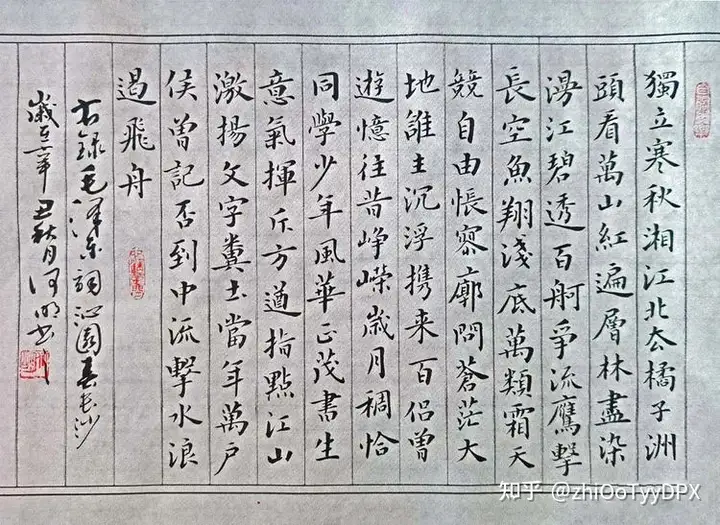 獨立寒秋湘江北去橘子洲
頭看萬山紅遍層林盡染
漫江碧透百舸爭流鷹擊
長空魚翔淺底萬類霜天
競自由悵寥廓問蒼茫大
地誰主沉浮携来百侣曾
遊憶往昔崢嶸歲月稠恰
同學少年風華正茂書生
意氣揮斥方遒指點江山
激揚文字糞土當年萬户
侯曾記否到中流擊水浪
遏飛舟
右錄毛澤东詞沁園春長沙
歲在辛丑秋月河明书
知乎 @zhiOoTyyDPX